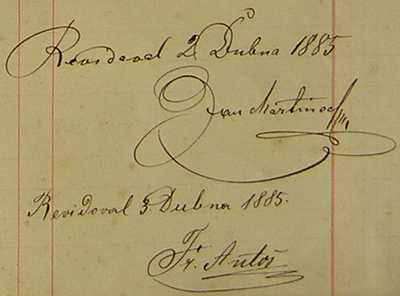 Revidoval 2 Dubna 1885
Jan Martinec
Revidoval 3 Dubna 1885.
Fr. Antoš